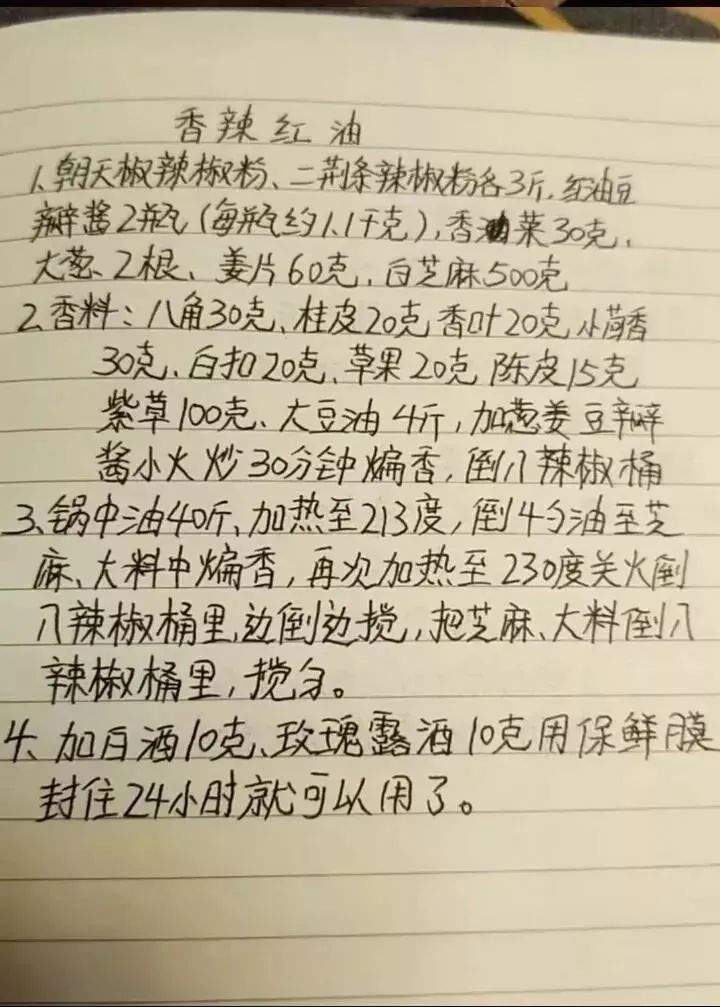 香辣红油
1、朝天椒辣椒粉、二荆条辣椒粉各3斤，红油豆
瓣酱2瓶（每瓶约1.1千克），香菜30克，
大葱、2根、姜片60克，白芝麻500克
2、香料：八角30克、桂皮20克香叶20克小茴香
30克、白扣20克、草果20克陈皮15克
紫草100克、大豆油4斤，加葱姜豆瓣
酱小火炒30分钟煸香，倒入辣椒桶
3、锅中油40斤、加热至213度，倒4勺油至芝
麻、大料中煸香，再次加热至230度关火倒
入辣椒桶里，边倒边搅，把芝麻、大料倒入
辣椒桶里，搅匀。
4、加白酒10克、玫瑰露酒10克用保鲜膜
封住24小时就可以用了。